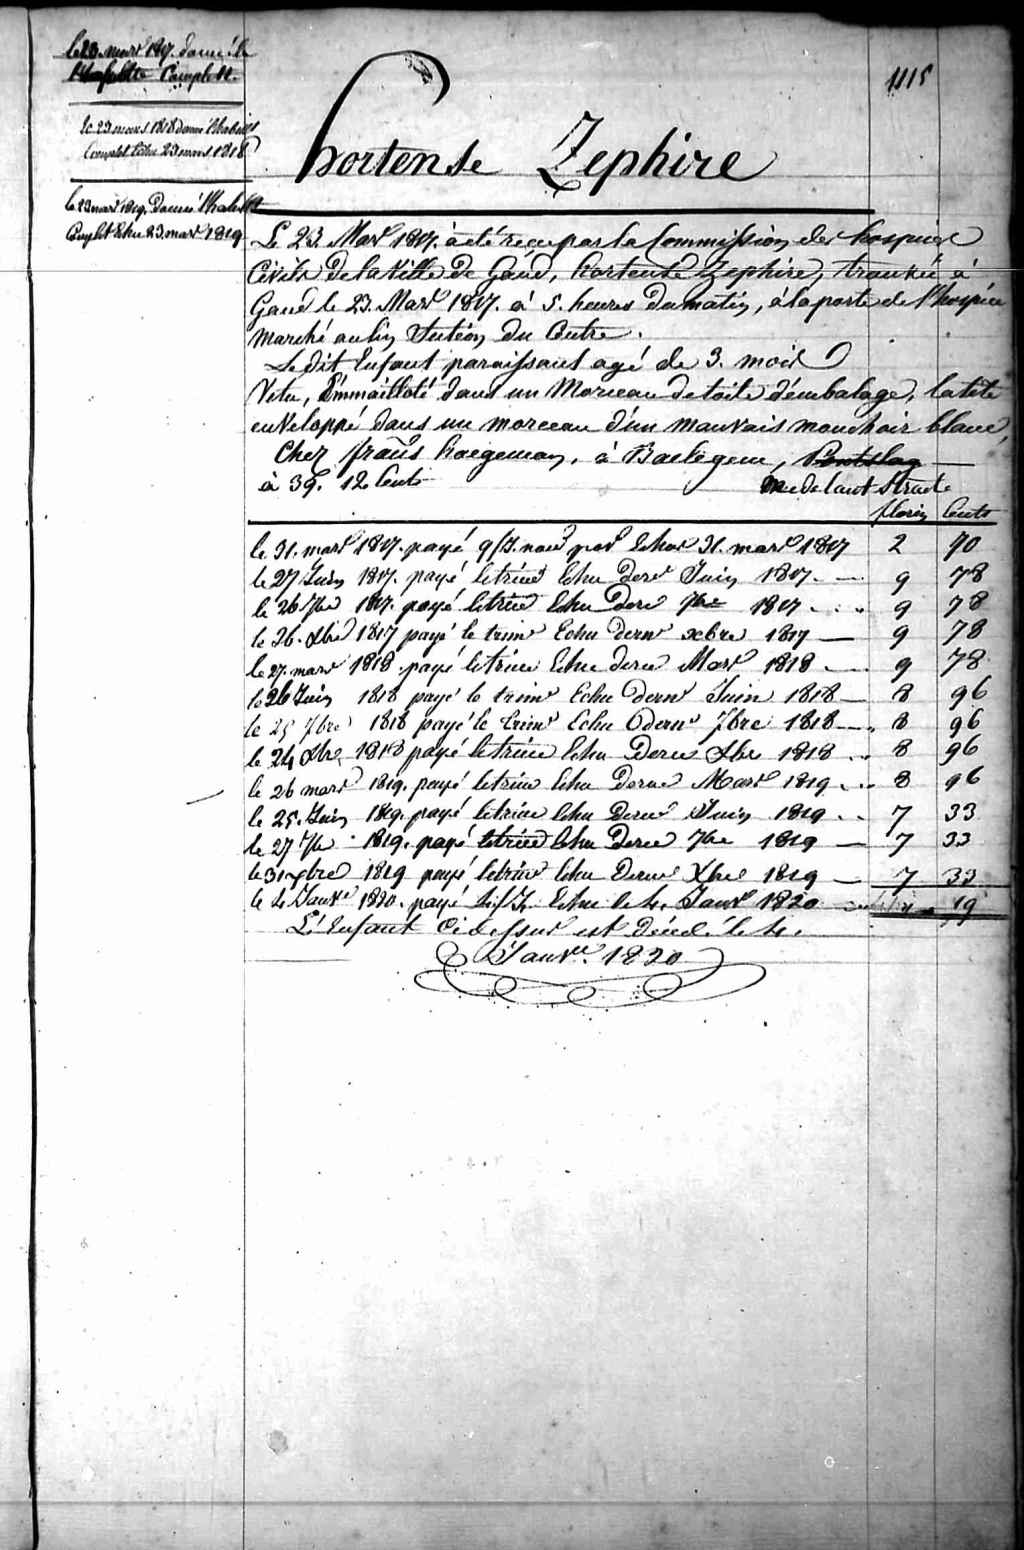 1115
le 23 mars 1817. donné le
Complette
le 23 mars 1818 donné l'habill
Complet Echu 23 mars 1818
le 23 mars 1819. Donné l'habillt
Complet Echu 23 mars 1819
hortense Zephire
Le 23. Mars 1817. a été reçu par la Commission des hospices
Civils de la Ville de Gand, hortense Zephire, trouvée à
Gand le 23. Mars 1817. à 5. heures du matin, à la porte de l'hospice
marché au lin Section du Centre.
Le dit Enfant paraissant agé de 3. mois
Vetu, Emmailloté dans un Morceau de toile d'embalage, la tête
enveloppé dans un morceau d'un mauvais mouchoir blanc,
Chez frans haegeman, à Baelegem,
à 39. 12 Cents
florin Cents
le 31. mars 1817. payé 9/J. Echus 31. mars 1817 2 70
le 27 Juin 1817. payé le trime Echu derr Juin 1817. — 9 78
le 26 7bre 1817. payé le trime Echu Dere 7bre 1817 . . . 9 78
le 26. Xbre 1817 payé le trimr Echu Dernr xbre 1817 — 9 78
le 27. mars 1818. payé le trime Echu dere Mars 1818 — 9 78
le 26 Juin 1818 payé le trimr Echu Dernr Juin 1818 — 8 96
le 25 7bre 1818 payé le trimr Echu Dernr 7bre 1818 — 8 96
le 24 Xbre 1818 payé le trime Echu Derne Xbre 1818 .. 8 96
le 26 mars 1819. payé le trime Echu Derne Mars 1819 . . 8 96
le 25. Juin 1819. payé le trime Echu Derne Juin 1819 . . 7 33
le 27 7bre 1819. payé le trime Echu Derne 7bre 1819 — 7 33
le 31 xbre 1819 payé le trimr Echu Derne Xbre 1819 — 7 33
le 4 Janvr 1820. payé Echu le 4. Janvr 1820 19
L'Enfant Ci dessus est Décéd. le 4.
Janvr. 1820